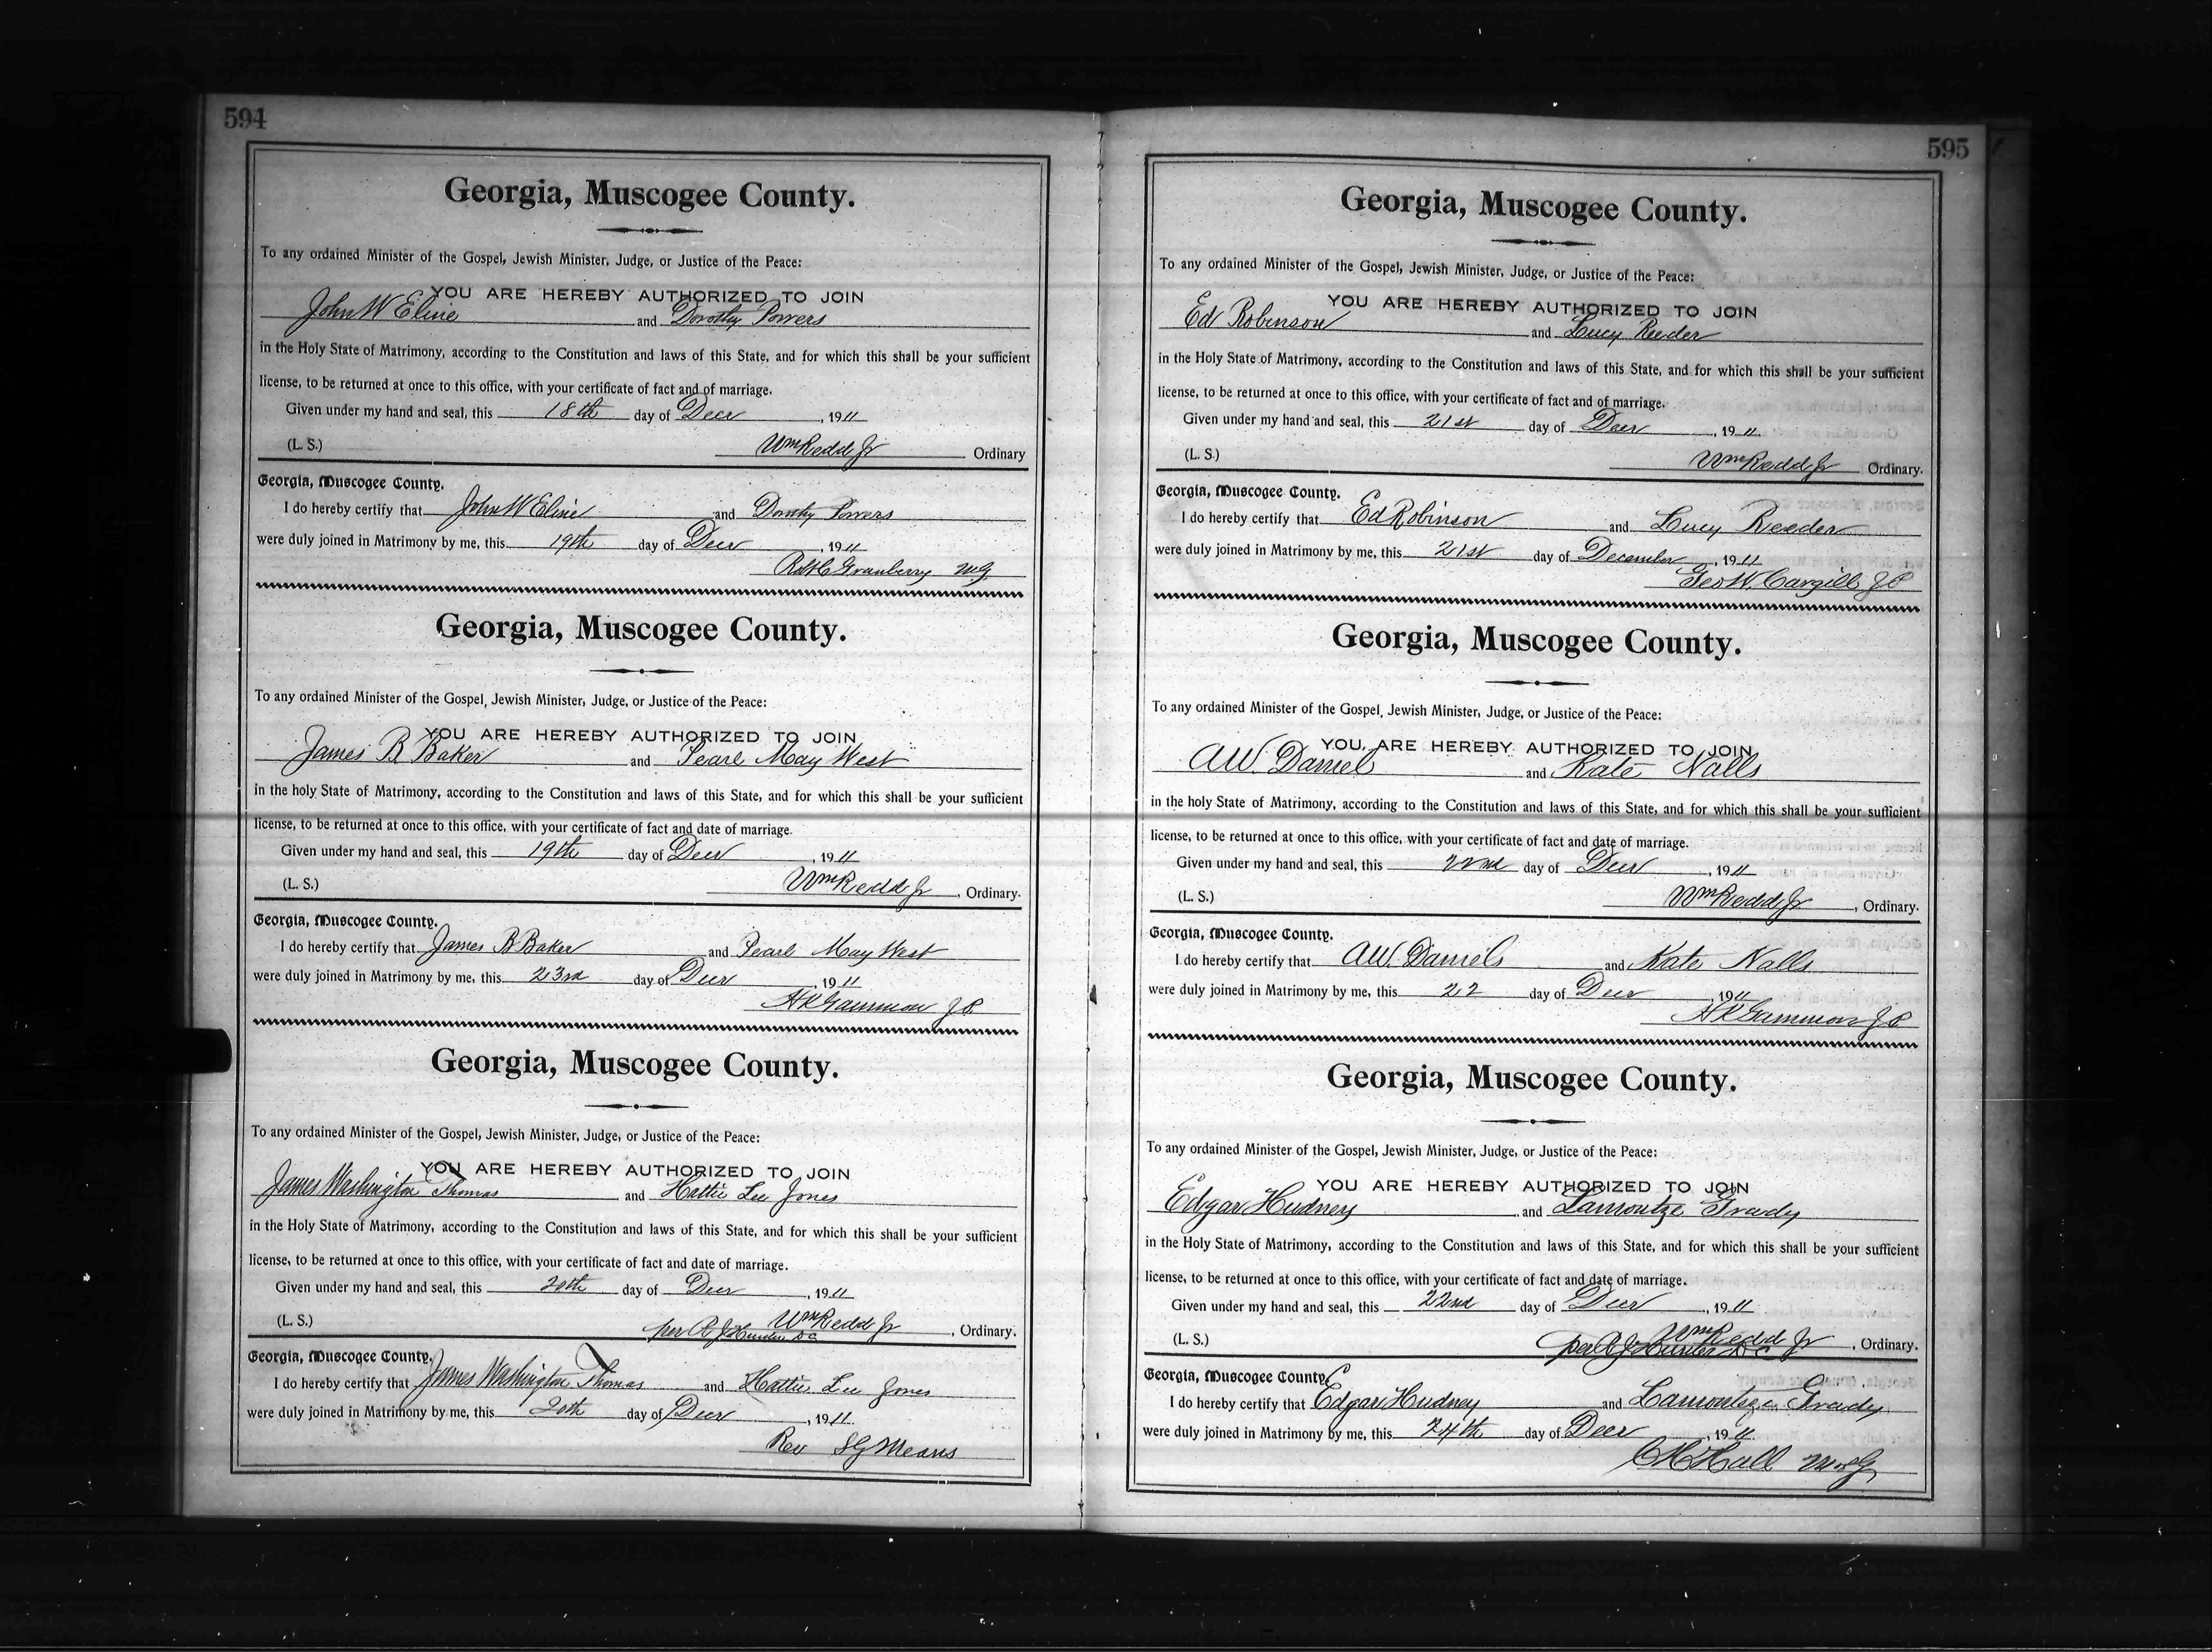 594
Georgia, Muscogee County.
To any ordained Minister of the Gospel, Jewish Minister, Judge, or Justice of the Peace:
YOU ARE HEREBY AUTHORIZED TO JOIN
John W Eline and Dorothy Powers
in the Holy State of Matrimony, according to the Constitution and laws of this State, and for which this shall be your sufficient
license, to be returned at once to this office, with your certificate of fact and of marriage.
Given under my hand and seal, this 18th day of Decr, 1911
(L. S.) Wm Redd Jr Ordinary
Georgia, Muscogee County.
I do hereby certify that John W Eline and Dorothy Powers
were duly joined in Matrimony by me, this 19th day of Decr, 1911
Robt C Granberry MG
Georgia, Muscogee County.
To any ordained Minister of the Gospel, Jewish Minister, Judge, or Justice of the Peace:
YOU ARE HEREBY AUTHORIZED TO JOIN
James B Baker and Pearl May West
in the holy State of Matrimony, according to the Constitution and laws of this State, and for which this shall be your sufficient
license, to be returned at once to this office, with your certificate of fact and date of marriage.
Given under my hand and seal, this 19th day of Decr, 1911
(L. S.) Wm Redd Jr, Ordinary.
Georgia, Muscogee County.
I do hereby certify that James B Baker and Pearl May West
were duly joined in Matrimony by me, this 23rd day of Decr, 1911
H R Gammon J P
Georgia, Muscogee County.
To any ordained Minister of the Gospel, Jewish Minister, Judge, or Justice of the Peace:
YOU ARE HEREBY AUTHORIZED TO JOIN
James Washington Thomas and Hattie Lee Jones
in the Holy State of Matrimony, according to the Constitution and laws of this State, and for which this shall be your sufficient
license, to be returned at once to this office, with your certificate of fact and date of marriage.
Given under my hand and seal, this 20th day of Decr, 1911
(L. S.) Wm Redd Jr, Ordinary.
per A J Hunter DC
Georgia, Muscogee County.
I do hereby certify that James Washington Thomas and Hattie Lee Jones
were duly joined in Matrimony by me, this 20th day of Decr, 1911.
Rev S G Means
595
Georgia, Muscogee County.
To any ordained Minister of the Gospel, Jewish Minister, Judge, or Justice of the Peace:
YOU ARE HEREBY AUTHORIZED TO JOIN
Ed Robinson and Lucy Reeder
in the Holy State of Matrimony, according to the Constitution and laws of this State, and for which this shall be your sufficient
license, to be returned at once to this office, with your certificate of fact and of marriage.
Given under my hand and seal, this 21st day of Decr, 1911.
(L. S.) Wm Redd Jr Ordinary.
Georgia, Muscogee County.
I do hereby certify that Ed Robinson and Lucy Reeder
were duly joined in Matrimony by me, this 21st day of December, 1911
Geo W. Cargill J P
Georgia, Muscogee County.
To any ordained Minister of the Gospel, Jewish Minister, Judge, or Justice of the Peace:
YOU ARE HEREBY AUTHORIZED TO JOIN
A W. Daniel and Kate Nalls
in the holy State of Matrimony, according to the Constitution and laws of this State, and for which this shall be your sufficient
license, to be returned at once to this office, with your certificate of fact and date of marriage.
Given under my hand and seal, this 22nd day of Decr, 1911
(L. S.) Wm Redd Jr, Ordinary.
Georgia, Muscogee County.
I do hereby certify that A W. Daniels and Kate Nalls
were duly joined in Matrimony by me, this 22 day of Decr, 1911
H R Gammon J P
Georgia, Muscogee County.
To any ordained Minister of the Gospel, Jewish Minister, Judge, or Justice of the Peace:
YOU ARE HEREBY AUTHORIZED TO JOIN
Edgar Hudney and Lamoutze Grady
in the Holy State of Matrimony, according to the Constitution and laws of this State, and for which this shall be your sufficient
license, to be returned at once to this office, with your certificate of fact and date of marriage.
Given under my hand and seal, this 22nd day of Decr, 1911
(L. S.) Wm Redd Jr, Ordinary.
per A J Hunter D C
Georgia, Muscogee County
I do hereby certify that Edgar Hudney and Lamoutze Grady
were duly joined in Matrimony by me, this 24th day of Decr, 1911.
C H Hall M.G